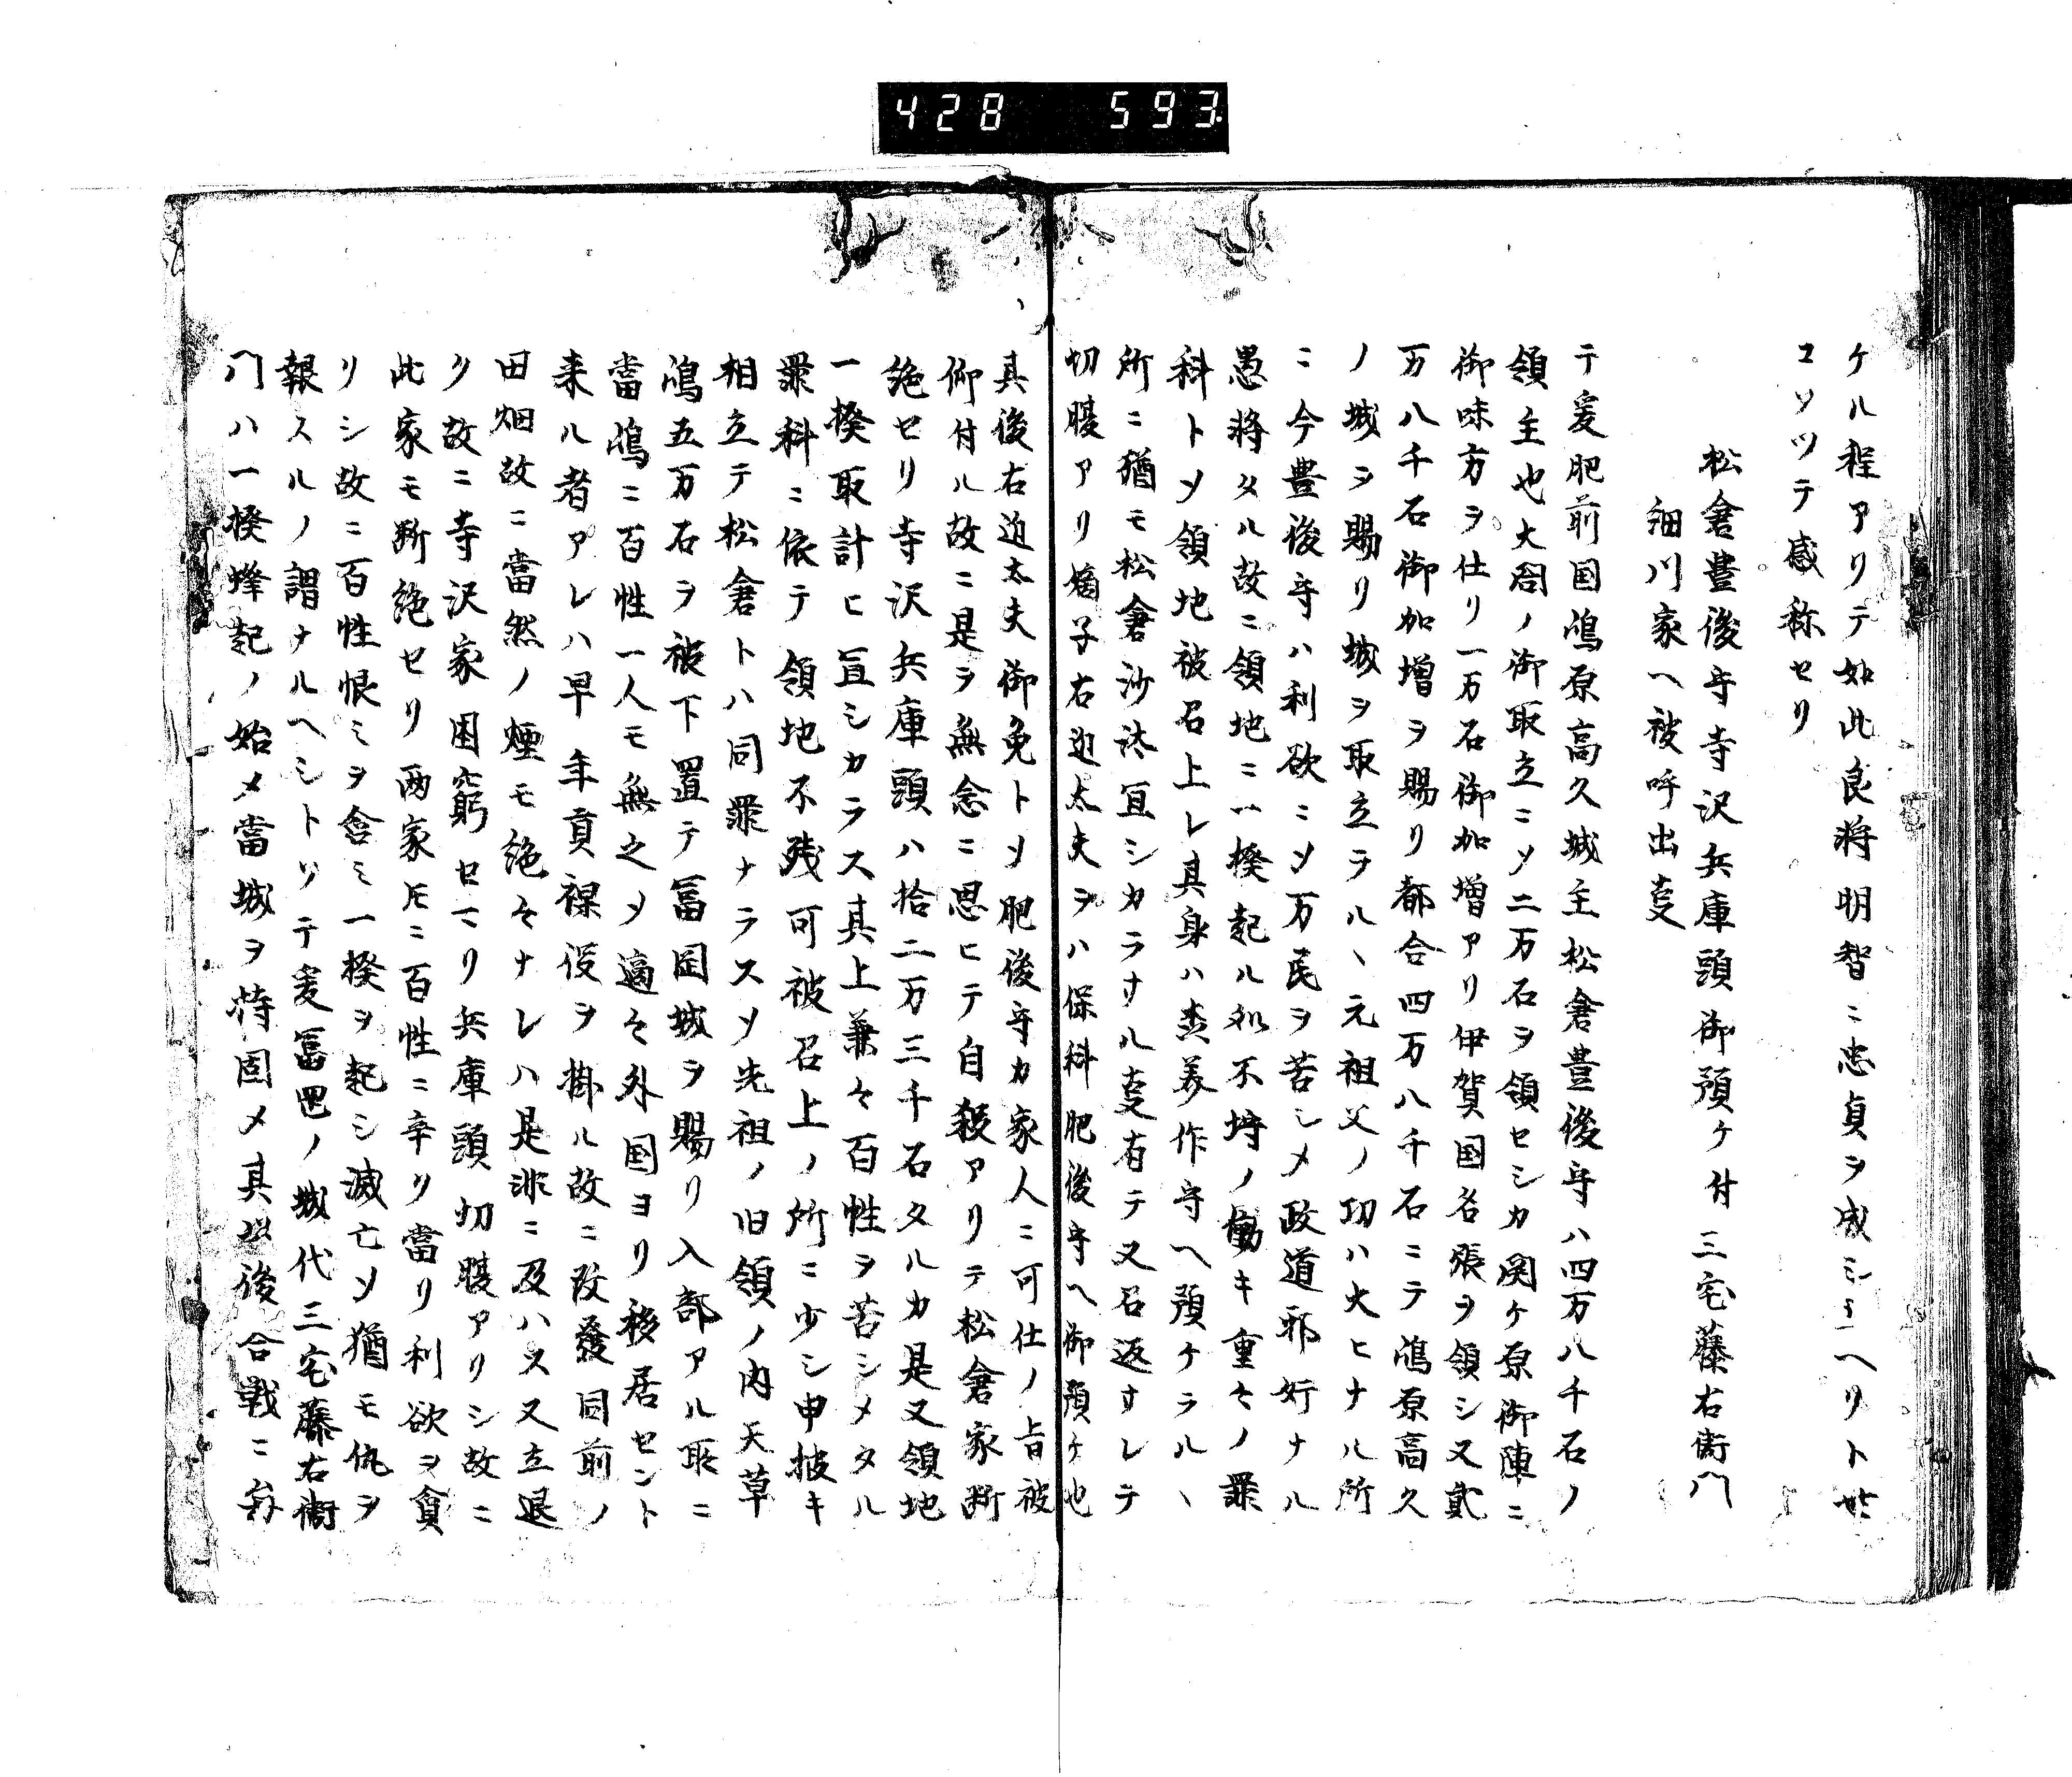 428 593.
ケル程アリテ如此良将明智ニ忠貞ヲ成シ々ヘリト世
コソツテ感称セリ
松倉豊後守寺沢兵庫頭御預ケ付三宅藤右衛門
細川家ヘ被呼出叓
于爰肥前国嶋原高久城主松倉豊後守ハ四万八千石ノ
領主也大閤ノ御取立ニソ二万石ヲ領セシカ関ケ原御陣ニ
御味方ヲ仕リ一万石御加増アリ伊賀国名張ヲ領シ又貳
万八千石御加増ヲ賜リ都合四万八千石ニテ嶋原高久
ノ城ヲ賜リ城ヲ取立ラル丶元祖父ノ功ハ大ヒナル所
ニ今豊後守ハ利欲ニソ万民ヲ苦シメ政道邪奸ナル
愚将タル故ニ領地ニ一揆起ル処不埒ノ働キ重々ノ罪
科トソ領地被召上レ其身ハ森美作守ヘ預ケラル丶
所ニ猶モ松倉沙汰宜シカラサル叓有テ又召返サレテ
切腹アリ嫡子右近太夫ヲハ保科肥後守ヘ御預ケ也
其後右近太夫御免トソ肥後守カ家人ニ可仕ノ旨被
仰付ル故ニ是ヲ無念ニ思ヒテ自殺アリテ松倉家断
絶セリ寺沢兵庫頭ハ拾二万三千石タルカ是又領地
一揆取計ヒ宜シカラス其上兼々百性ヲ苦シメタル
罪科ニ依テ領地不残可被召上ノ所ニ少シ申披キ
相立テ松倉トハ同罪ナラスソ先祖ノ旧領ノ内天草
嶋五万石ヲ被下置テ冨岡城ヲ賜リ入部アル所ニ
當嶋ニ百性一人モ無之ソ適々外国ヨリ移居セント
来ル者アレハ早年貢課役ヲ掛ル故ニ改發目前ノ
田畑故ニ當然ノ煙モ絶々ナレハ是非ニ及ハス又立退
ク故ニ寺沢家困窮セマリ兵庫頭切腹アリシ故ニ
此家モ断絶セリ両家トモニ百性ニ辛ク當リ利欲ヲ貪
リシ故ニ百性恨ミヲ含ミ一揆ヲ起シ滅亡ソ猶モ仇ヲ
報スルノ謂ナルヘシトソ于爰冨岡ノ城代三宅藤右衛
門ハ一揆蜂起ノ始メ當城ヲ持固メ其後合戦ニ